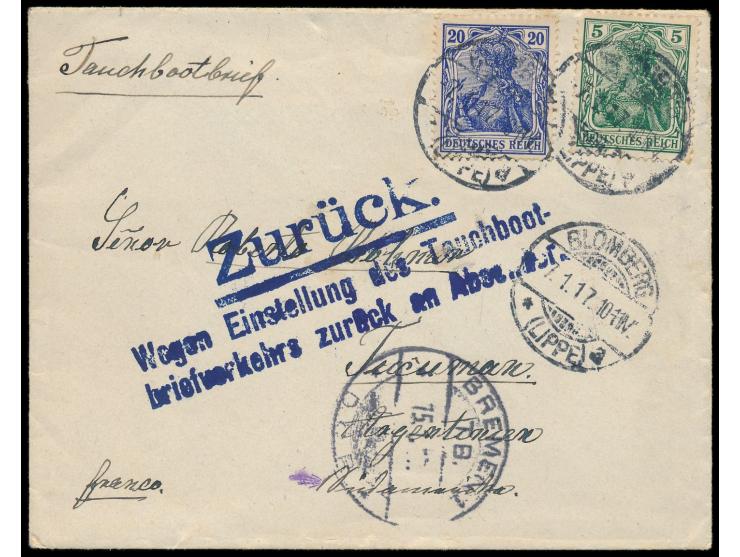 Tauchbootbrief.
20 20
DEUTSCHES REICH
5 5
DEUTSCHES REICH
(LIPPE) a
(LIPPE) a
Zurück.
Señor Roberto
Wegen Einstellung des Tauchboot-
briefverkehrs zurück an Absender.
BLOMBERG
1.17.10-11V.
* (LIPPE) a
Tucuman.
BREMEN
T.B.
15.
Argentinien
franco.
Südamerika.